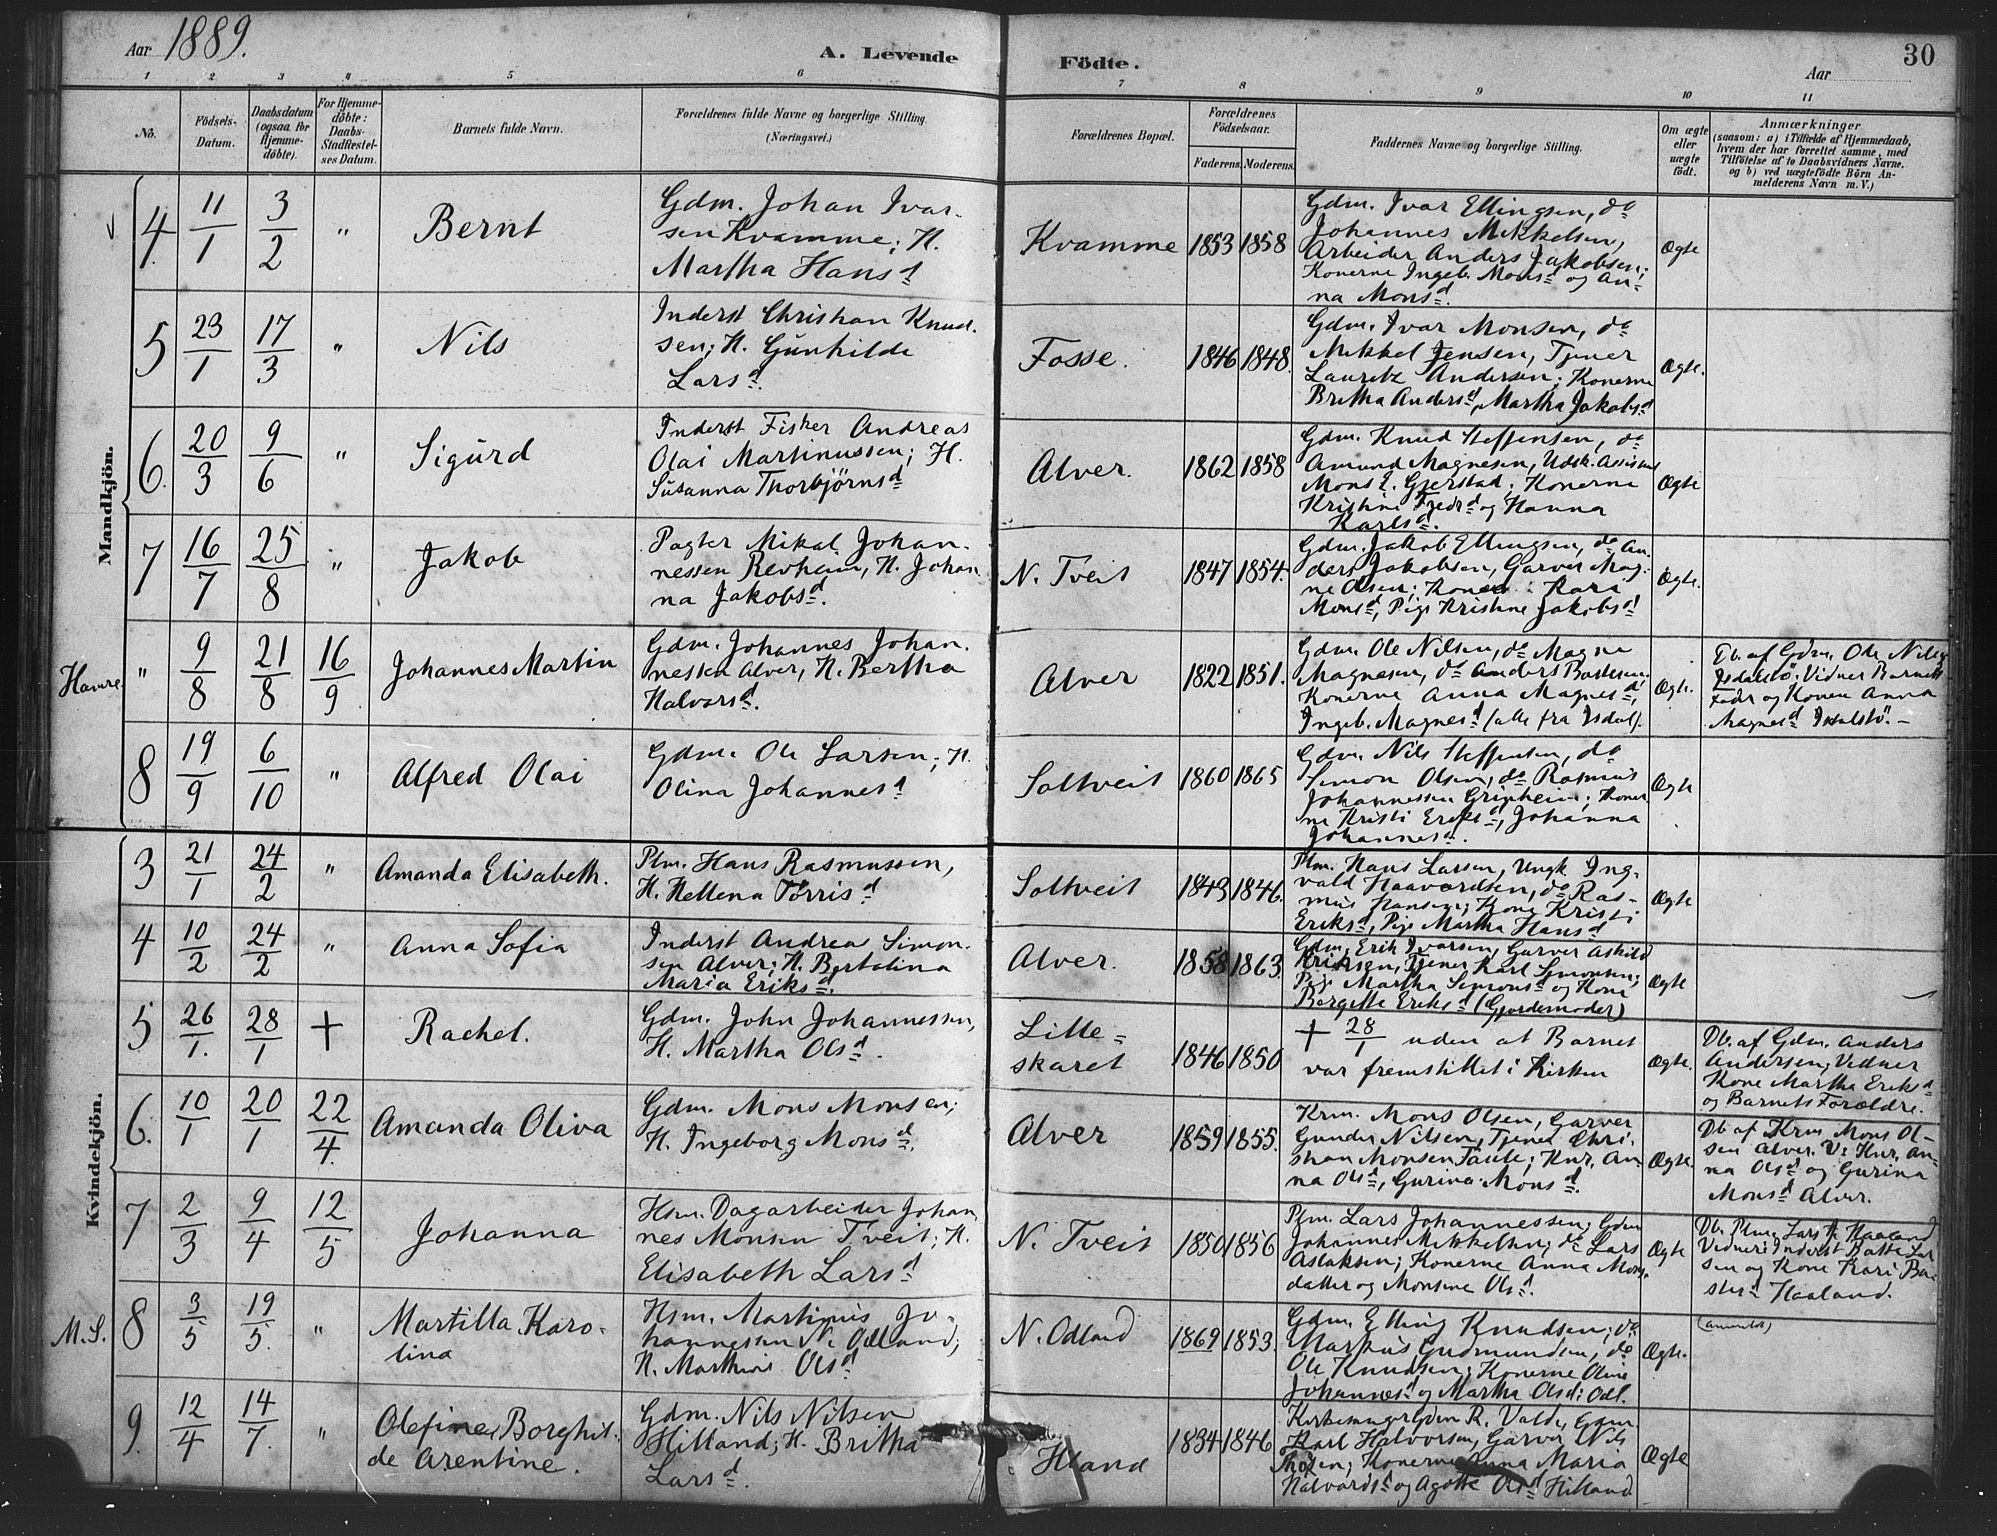 Aar 1889.
A. Levende Födte.
Aar
30
1 2 3 4 5 6 7 8 9 10 11
No.
Födsels-Datum.
Daabsdatum (ogsaa for Hjemme-döbte).
For Hjemme-döbte: Daabs-Stadfæstel-ses Datum.
Barnets fulde Navn.
Forældrenes fulde Navne og borgerlige Stilling. (Næringsvei.)
Forældrenes Bopæl.
Forældrenes Födselsaar.
Faderens. Moderens.
Faddernes Navne og borgerlige Stilling.
Om ægte eller uægte födt.
Anmærkninger
(saasom: a) i Tilfælde af Hjemmedaab,
hvem der har forrettet samme, med
Tilföielse af to Daabsvidners Navne.
og b) ved uægtefödte Börn An-
melderens Navn m. V.)
Mandkjön.
4. 11/1 3/2 " Bernt
Gdm. Johan Ivar-
sen Kvamme; H.
Martha Hansd
Kvamme 1853 1858
Gdm. Ivar Ellingsen, do
Johannes Mikkelsen,
Arbeider Anders Jakobsen;
Konerne Ingeb. Monsd og An-
na Monsd.
Ægte
5 23/1 17/3 " Nils
Inderst Christian Knud-
sen; H. Gunhilde
Larsd.
Fosse. 1846 1848.
Gdm. Ivar Monsen, do
Mikkel Jensen, Tjener
Lauritz Andersen; Konerne
Britha Andersd, Martha Jakobsd
Ægte.
6. 20/3 9/6 " Sigurd
Inderst Fisker Andreas
Olai Martinussen; H.
Susanna Thorbjörnsd
Alver. 1862 1858
Gdm. Knud Steffensen, do
Amund Magnesen, Udsk. Assistent
Mons E. Gjerstad; Konerne
Kristine Fredrd og Hanna
Karlsd.
Ægte
7 16/7 25/8 " Jakob
Pagter Mikal Johan-
nessen Revheim, H. Johan-
na Jakobsd.
N. Tveit 1847 1854.
Gdm. Jakob Ellingsen, do An-
ders Jakobsen, Garver Mag-
ne Olsen; Kone Kari
Monsd, Pige Kristine Jakobsd
Ægte.
Hamre. " 9/8 21/8 16/9 Johannes Martin
Gdm. Johannes Johan-
nessen Alver, H. Bertha
Halvorsd.
Alver 1822 1851.
Gdm. Ole Nilsen, do Magne
Magnesen, do Anders Bastesen
Konerne Anna Magnesd,
Ingeb. Magnesd (alle fra Isdal).
Ægte.
Db. af Gdm. Ole Nilsen
Isdalstö. Vidner Barnets
Fader og Konen Anna
Magnesd Isdalstö. —
8 19/9 6/10 " Alfred Olai
Gdm. Ole Larsen; H.
Olina Johannesd
Soltveit 1860 1865
Gdm. Nils Steffensen, do
Simon Olsen, do Rasmus
Johannessen Gripheim; Koner-
ne Kristi Eriksd, Johanna
Johannesd.
Ægte
Kvindekjön.
3 21/1 24/2 " Amanda Elisabeth.
Plm. Hans Rasmussen,
H. Hellena Torrisd
Soltveit 1843 1846.
Plm. Hans Larsen, Ungk. Ing-
vald Haavardsen, do Ras-
mus Hansen; Kone Kristi
Eriksd, Pige Martha Hansd
Ægte
4 10/2 24/2 " Anna Sofia
Inderst Andreas Simon-
sen Alver; H. Bertolina
Maria Eriksd.
Alver. 1858 1863.
Gdm. Erik Ivarsen, Garver Askild
Eriksen, Tjener Karl Simonsen;
Pige Martha Simonsd og Kone
Bergitte Eriksd (Gjordemoder)
Ægte
5 26/1. 28/1 + Rachel.
Gdm. John Johannessen,
H. Martha Olsd.
Lille=
skaret 1846 1850
+ 28/1 uden at Barnet
var fremstillet i Kirken
Ægte.
Db. af Gdm. Anders
Andersen; Vidner
Kone Martha Eriksd
og Barnets Forældre.
6. 10/1 20/1 22/4. Amanda Oliva
Gdm. Mons Monsen;
H. Ingeborg Monsd.
Alver 1859 1855.
Krm. Mons Olsen, Garver
Gunder Nilsen, Tjener Chri-
stian Monsen Taule; Knr. An-
na Olsd, Gurina Monsd.
Ægte.
Db af Krm Mons Ol-
sen Alver. V: Knr. An-
na Olsd og Gurina
Monsd Alver.
7 2/3 9/4 12/5 Johanna
Hsm. Dagarbeider Johan-
nes Monsen Tveit; H.
Elisabeth Larsd
N. Tveit 1850 1856
Plm. Lars Johannessen; Gdm
Johannes Mikkelsen; do Lars
Aslaksen; Konerne Anna Mons-
datter og Monsine Olsd.
Ægte
Db. Plm. Lars Haaland
Vidner: Inderst Baste Lar-
sen og Kone Kari Ba-
stesd Haaland.
M.S. 8 3/5 19/5. " Martilla Karo-
lina
Hsm. Martinus Jo-
hannessen N. Odland;
H. Marthine Olsd
N. Odland 1869 1853.
Gdm. Elling Knudsen; do
Markus Gudmundsen; do
Ole Knudsen; Konerne Oline
Johannesd og Martha Olsd: Odl.
Ægte.
(anmeldt)
9. 12/4 14/7. " Olefine Borghil-
de Arentine.
Gdm. Nils Nilsen
Hilland; H. Britha
Larsd.
land 1834 1846
Kirkesanger Gdm R. Valde, Gdm.
Karl Halvorsen, Garver Nils
Konerne Anna Maria
Halvardsd og Agotte Olsd Hilland
Ægte